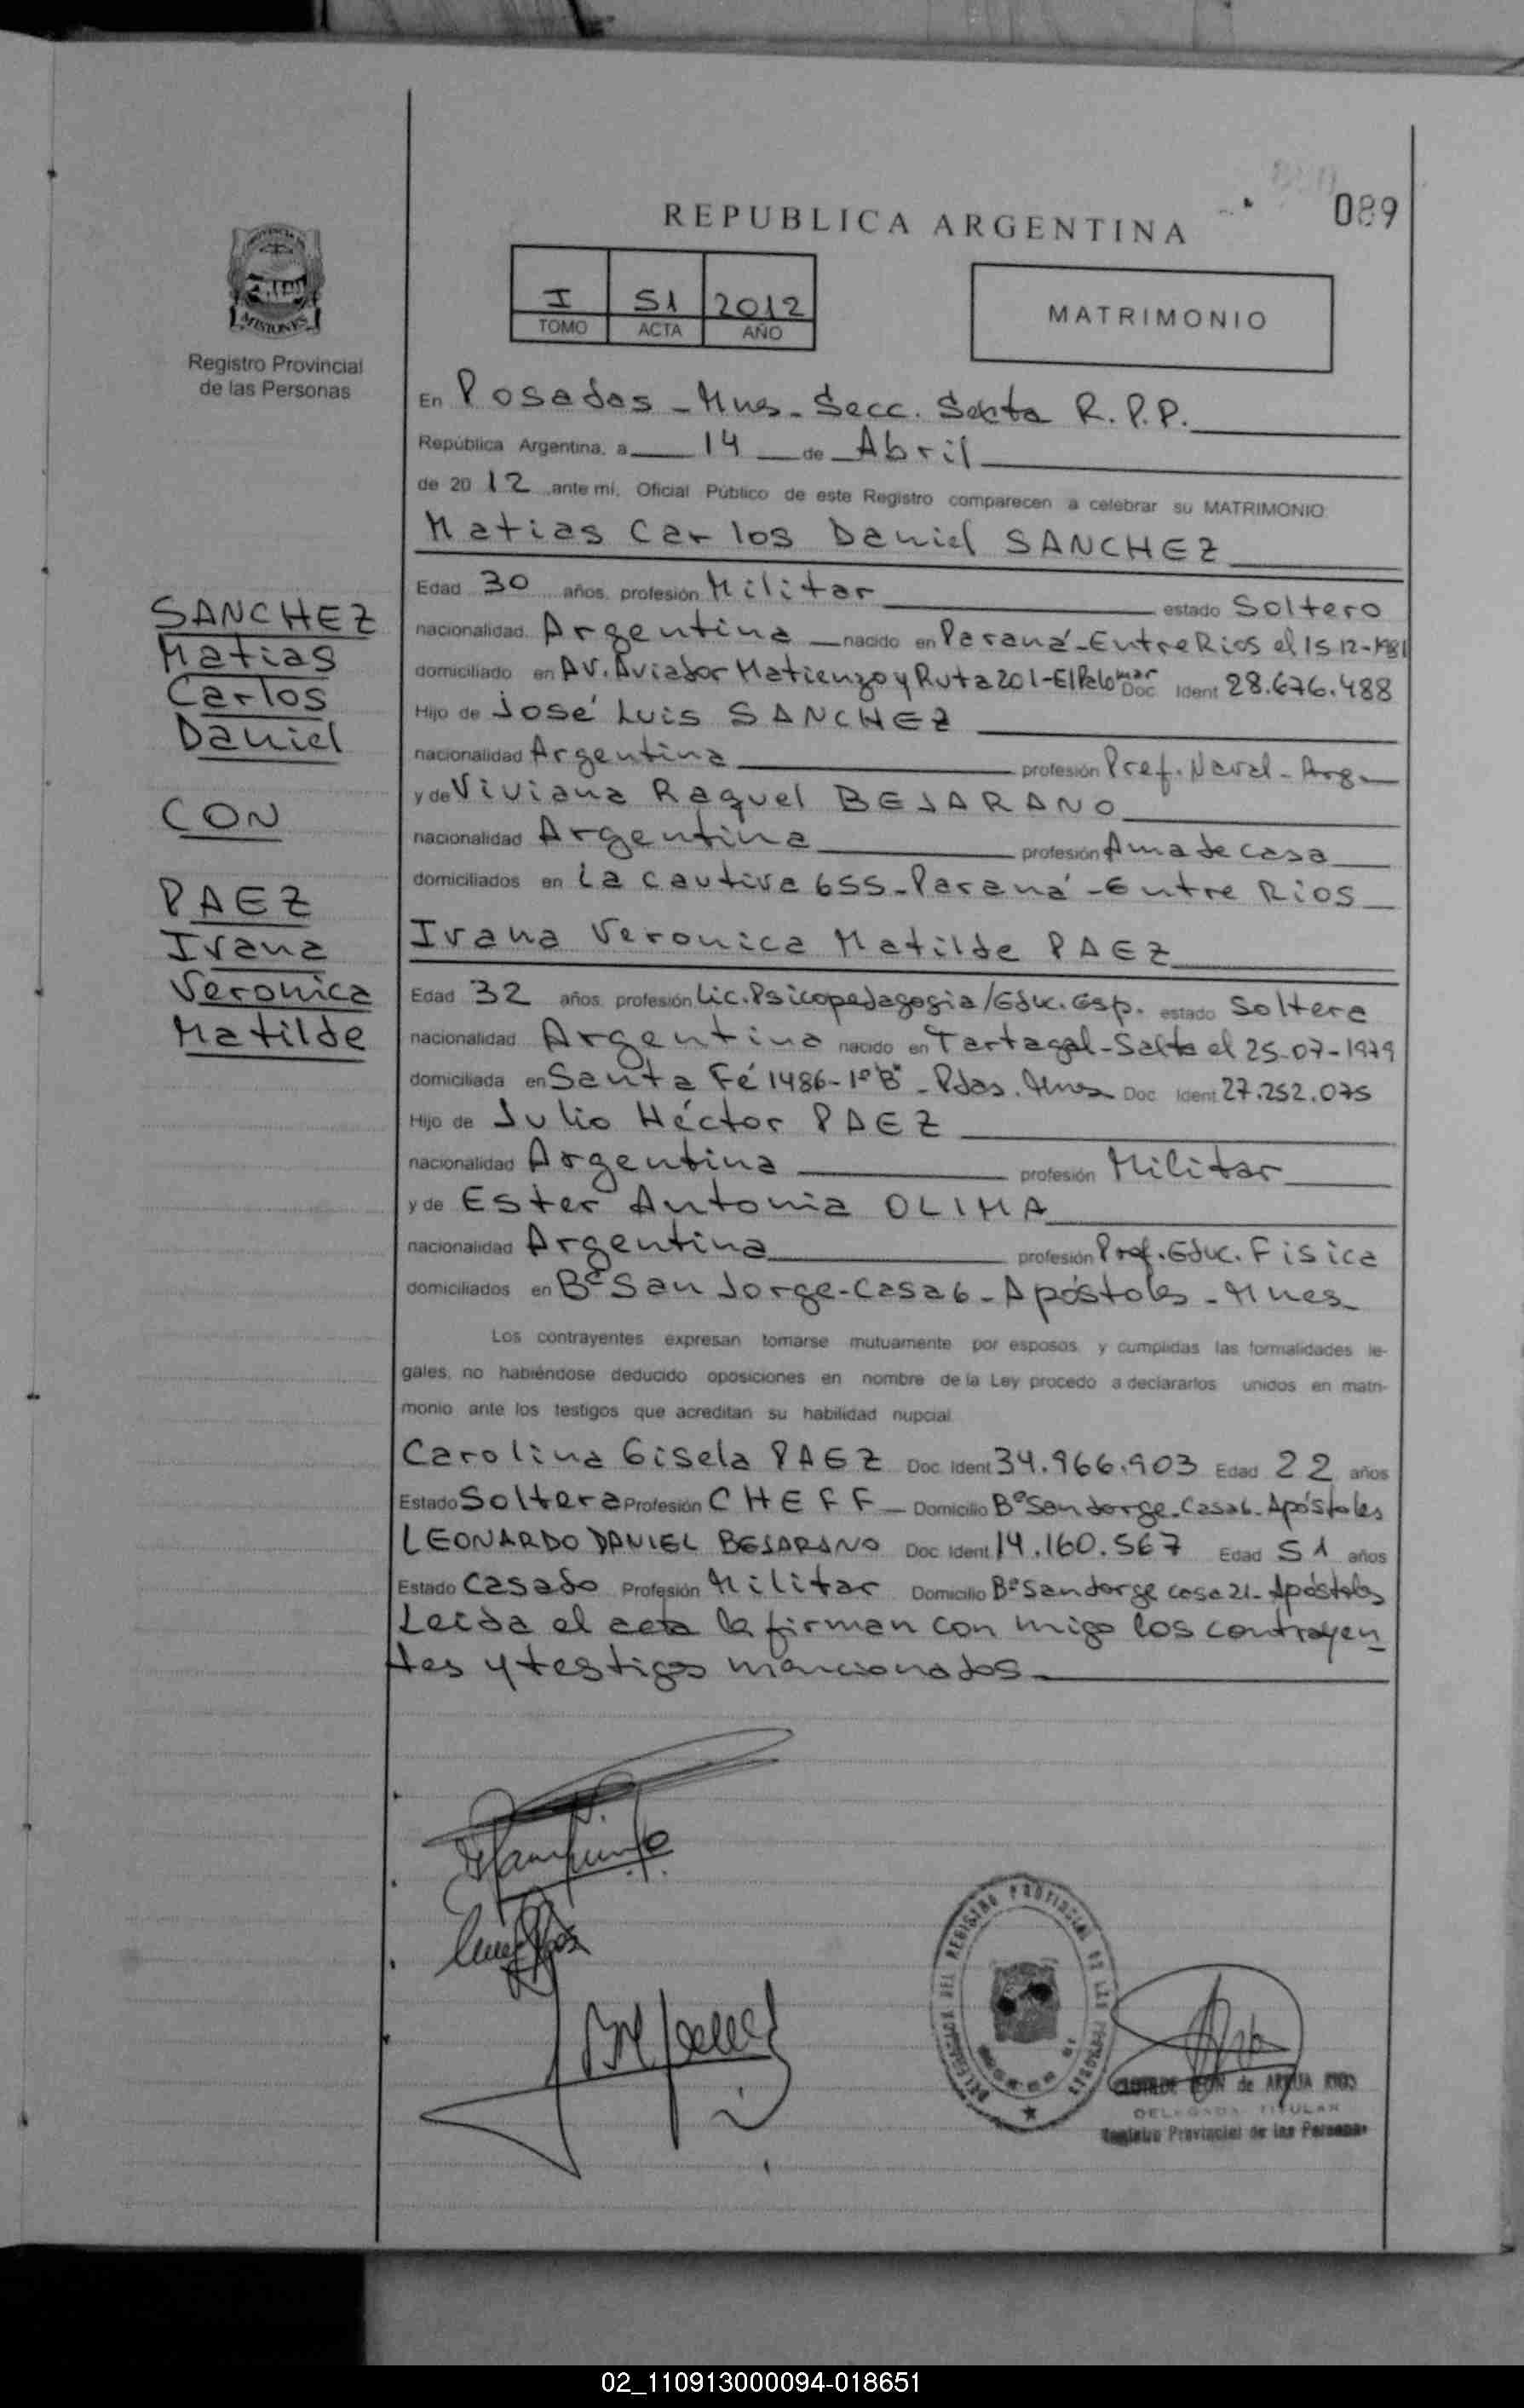 REPUBLICA ARGENTINA
089
PROVINCIA DE
MISIONES
Registro Provincial
de las Personas
I 51 2012
TOMO ACTA AÑO
MATRIMONIO
En Posadas - Mnes - Secc. Sexta R.P.P.
República Argentina, a 14 de Abril
de 2012, ante mí, Oficial Público de este Registro comparecen a celebrar su MATRIMONIO:
Matias Carlos Daniel SANCHEZ
Edad 30 años, profesión Militar estado Soltero
nacionalidad Argentina nacido en Paraná - Entre Rios el 15-12-1981
domiciliado en AV. Aviador Matienzo y Ruta 201 - El Palomar Doc. Ident 28.676.488
Hijo de José Luis SANCHEZ
nacionalidad Argentina profesión Pref. Naval - Arg.
y de Viviana Raquel BEJARANO
nacionalidad Argentina profesión Ama de casa
domiciliados en La cautiva 655 - Paraná - Entre Rios
Ivana Veronica Matilde PAEZ
Edad 32 años, profesión Lic. Psicopedagogia/Educ. Esp. estado Soltera
nacionalidad Argentina nacido en Tartagal - Salta el 25-07-1979
domiciliada en Santa Fé 1486 - 1º "B" - Pdas. Mnes Doc. Ident 27.252.075
Hijo de Julio Héctor PAEZ
nacionalidad Argentina profesión Militar
y de Ester Antonia OLIMA
nacionalidad Argentina profesión Prof. Educ. Fisica
domiciliados en Bº San Jorge - Casa 6 - Apóstoles - Mnes
Los contrayentes expresan tomarse mutuamente por esposos, y cumplidas las formalidades le-
gales, no habiéndose deducido oposiciones en nombre de la Ley procedo a declararlos unidos en matri-
monio ante los testigos que acreditan su habilidad nupcial.
Carolina Gisela PAEZ Doc. Ident 34.966.903 Edad 22 años
Estado Soltera Profesión CHEFF Domicilio Bº San Jorge - Casa 6 - Apóstoles
LEONARDO DANIEL BEJARANO Doc. Ident 14.160.567 Edad 51 años
Estado Casado Profesión Militar Domicilio Bº San Jorge casa 21 - Apóstoles
Leida el acta la firman con migo los contrayen
tes y testigos mencionados
SANCHEZ
Matias
Carlos
Daniel
CON
PAEZ
Ivana
Veronica
Matilde
DELEGACION DEL REGISTRO PROVINCIAL DE LAS PERSONAS
DELEGADA TITULAR
Registro Provincial de las Personas
02_110913000094-018651